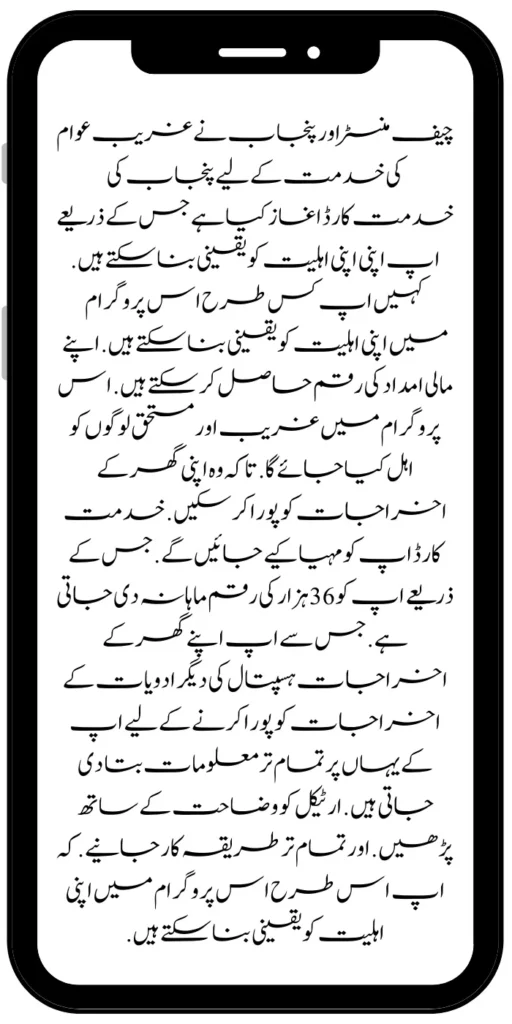 چیف منسٹر اور پنجاب نے غریب عوام
کی خدمت کے لیے پنجاب کی
خدمت کارڈ اغاز کیا ہے جس کے ذریعے
اپ اپنی اپنی اہلیت کو یقینی بنا سکتے ہیں.
کہیں اپ کس طرح اس پروگرام
میں اپنی اہلیت کو یقینی بنا سکتے ہیں. اپنے
مالی امداد کی رقم حاصل کر سکتے ہیں. اس
پروگرام میں غریب اور مستحق لوگوں کو
اہل کیا جائے گا. تاکہ وہ اپنی گھر کے
اخراجات کو پورا کر سکیں. خدمت
کارڈ اپ کو مہیا کیے جائیں گے. جس کے
ذریعے اپ کو 36 ہزار کی رقم ماہانہ دی جاتی
ہے. جس سے اپ اپنے گھر کے
اخراجات ہسپتال کی دیگر ادویات کے
اخراجات کو پورا کرنے کے لیے اپ
کے یہاں پر تمام تر معلومات بتا دی
جاتی ہیں. ارٹیکل کو وضاحت کے ساتھ
پڑھیں. اور تمام تر طریقہ کار جانیے. کہ
اپ اس طرح اس پروگرام میں اپنی
اہلیت کو یقینی بنا سکتے ہیں.